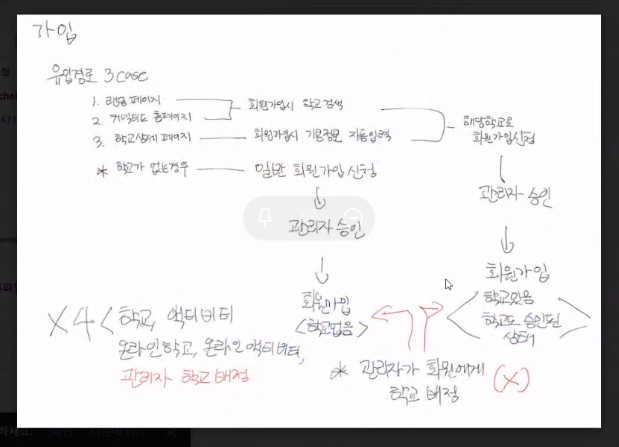 가입
유입경로 3 case
1. 랜딩 페이지
2. 커먹티드 홈페이지
회원가입시 학교검색
3. 학교상세 페이지
회원가입시 기본정보 자동입력
해당학교로
회원가입신청
* 학교가 없는경우
일반 회원가입 신청
관리자 승인
관리자 승인
회원가입
<학교없음>
회원가입
학교있음
학교도 승인된
상태
X4 < 학교, 액티비티
온라인학교, 온라인액티비티,
관리자 학교배정
* 관리자가 회원에게
학교 배정
(X)